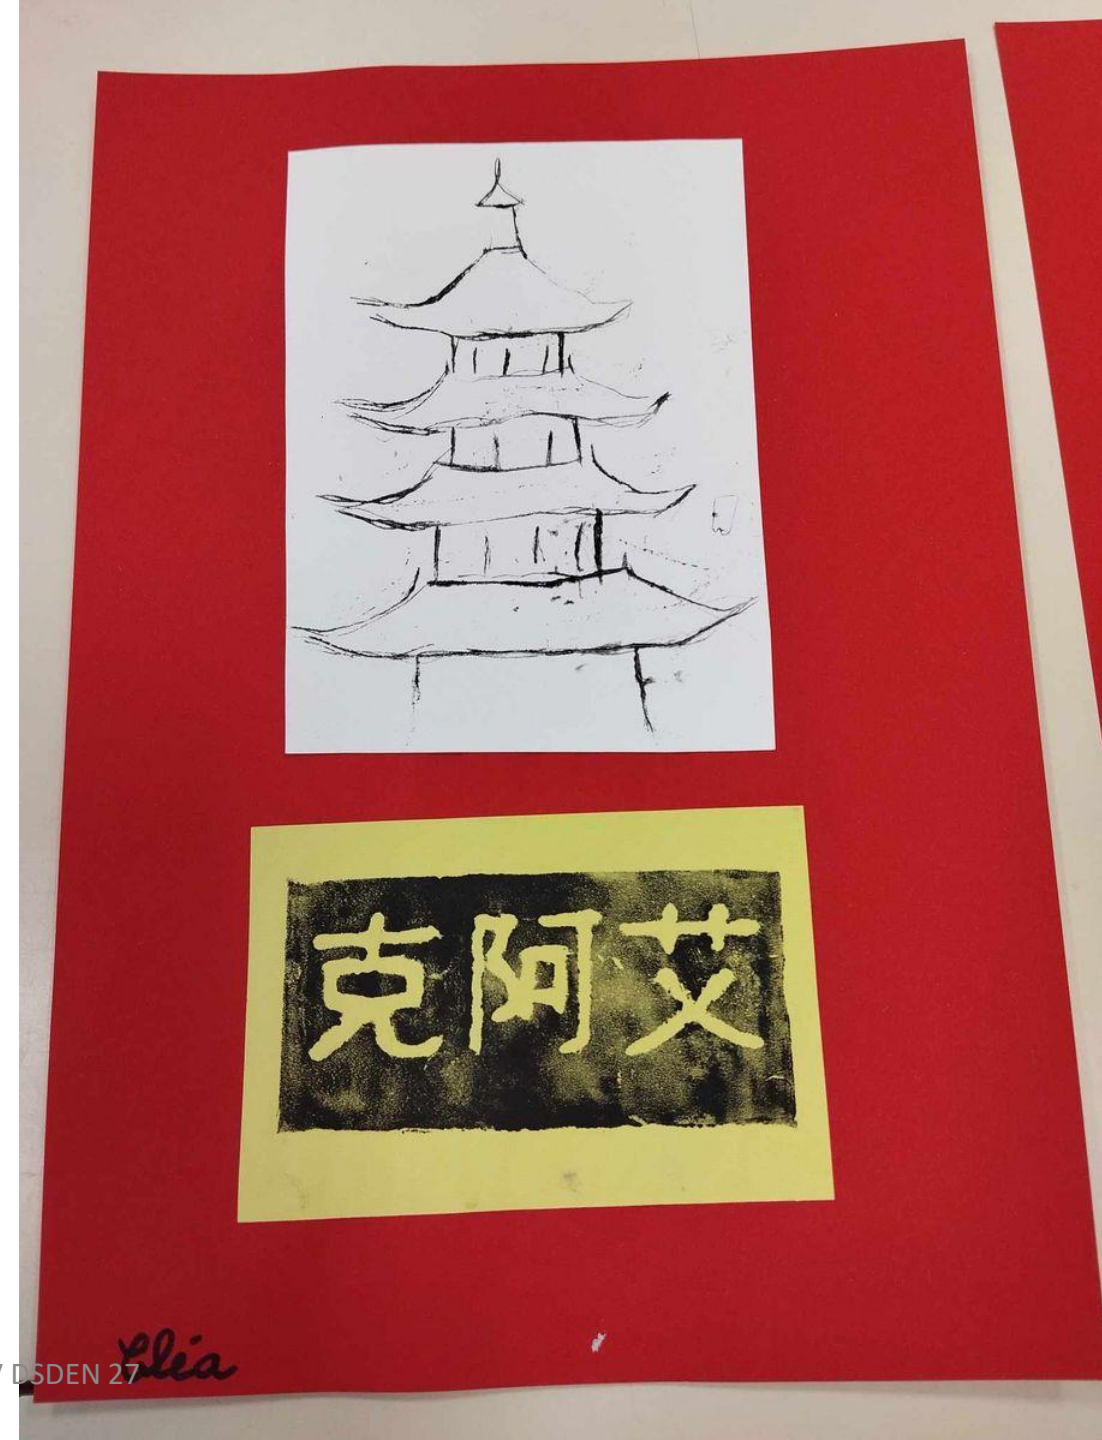 克阿艾
Cléa
DSDEN 27